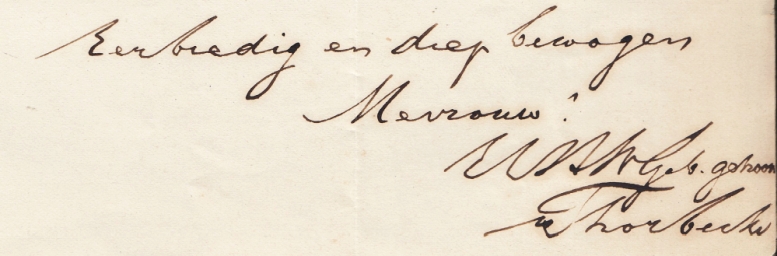 Eerbiedig en diep bewogen
Mevrouw!
UHWGeb. gehoorz
Thorbecke